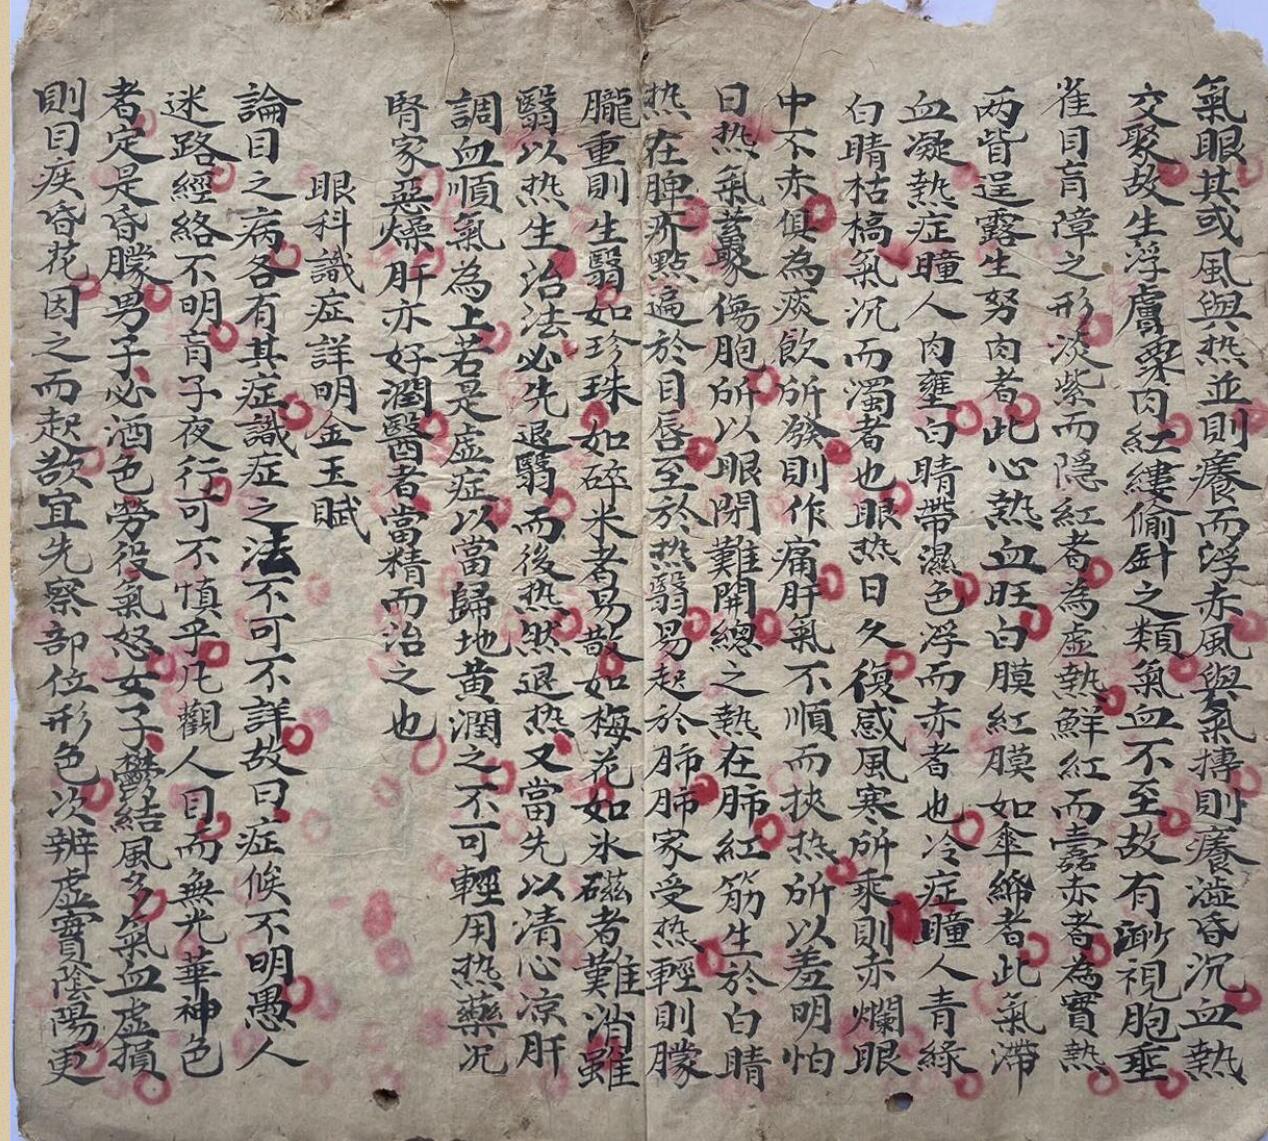 氣眼其或風與热並則癢而浮赤風與氣摶則癢澁昏沉血熱
交聚故生浮膚粟肉紅縷偷針之類氣血不至故有渺視胞垂
雀目肓障之形淡紫而隠紅者為虛熱鮮紅而赤者為實熱
两眥逞露生努肉者此心熱血旺白膜紅膜如傘緜者此氣滯
血凝熱症瞳人肉壅白睛帶濕色浮而赤者也冷症瞳人青綠
白睛枯槁氣沉而濁者也眼热日久復感風寒所乘則赤爛眼
中不赤俱為痰飲所發則作痛肝氣不順而挾热所以羞明怕
日热氣蓄聚傷胞所以眼閉難開總之熱在肺紅筋生於白睛
热在脾所點遍於目唇至於热翳易起於肺肺家受热輕則朦
朧重則生翳如珍珠如碎米者易散如梅花如氷磁者難消雖
翳以热生治法必先退翳而後热然退热又當先以清心凉肝
調血順氣為上若是虛症以當歸地黄潤之不可輕用热藥况
腎家惡燥肝亦好潤醫者當精而治之也
眼科識症詳明金玉賦
論目之病各有其症識症之法不可不詳故曰症候不明愚人
迷路經絡不明肓子夜行可不慎乎凡觀人目而無光華神色
者定是昏朦男子必酒色勞役氣怒女子欝結風多氣血虛損
則目疾昏花因之而起故宜先察部位形色次辨虛實陰陽更